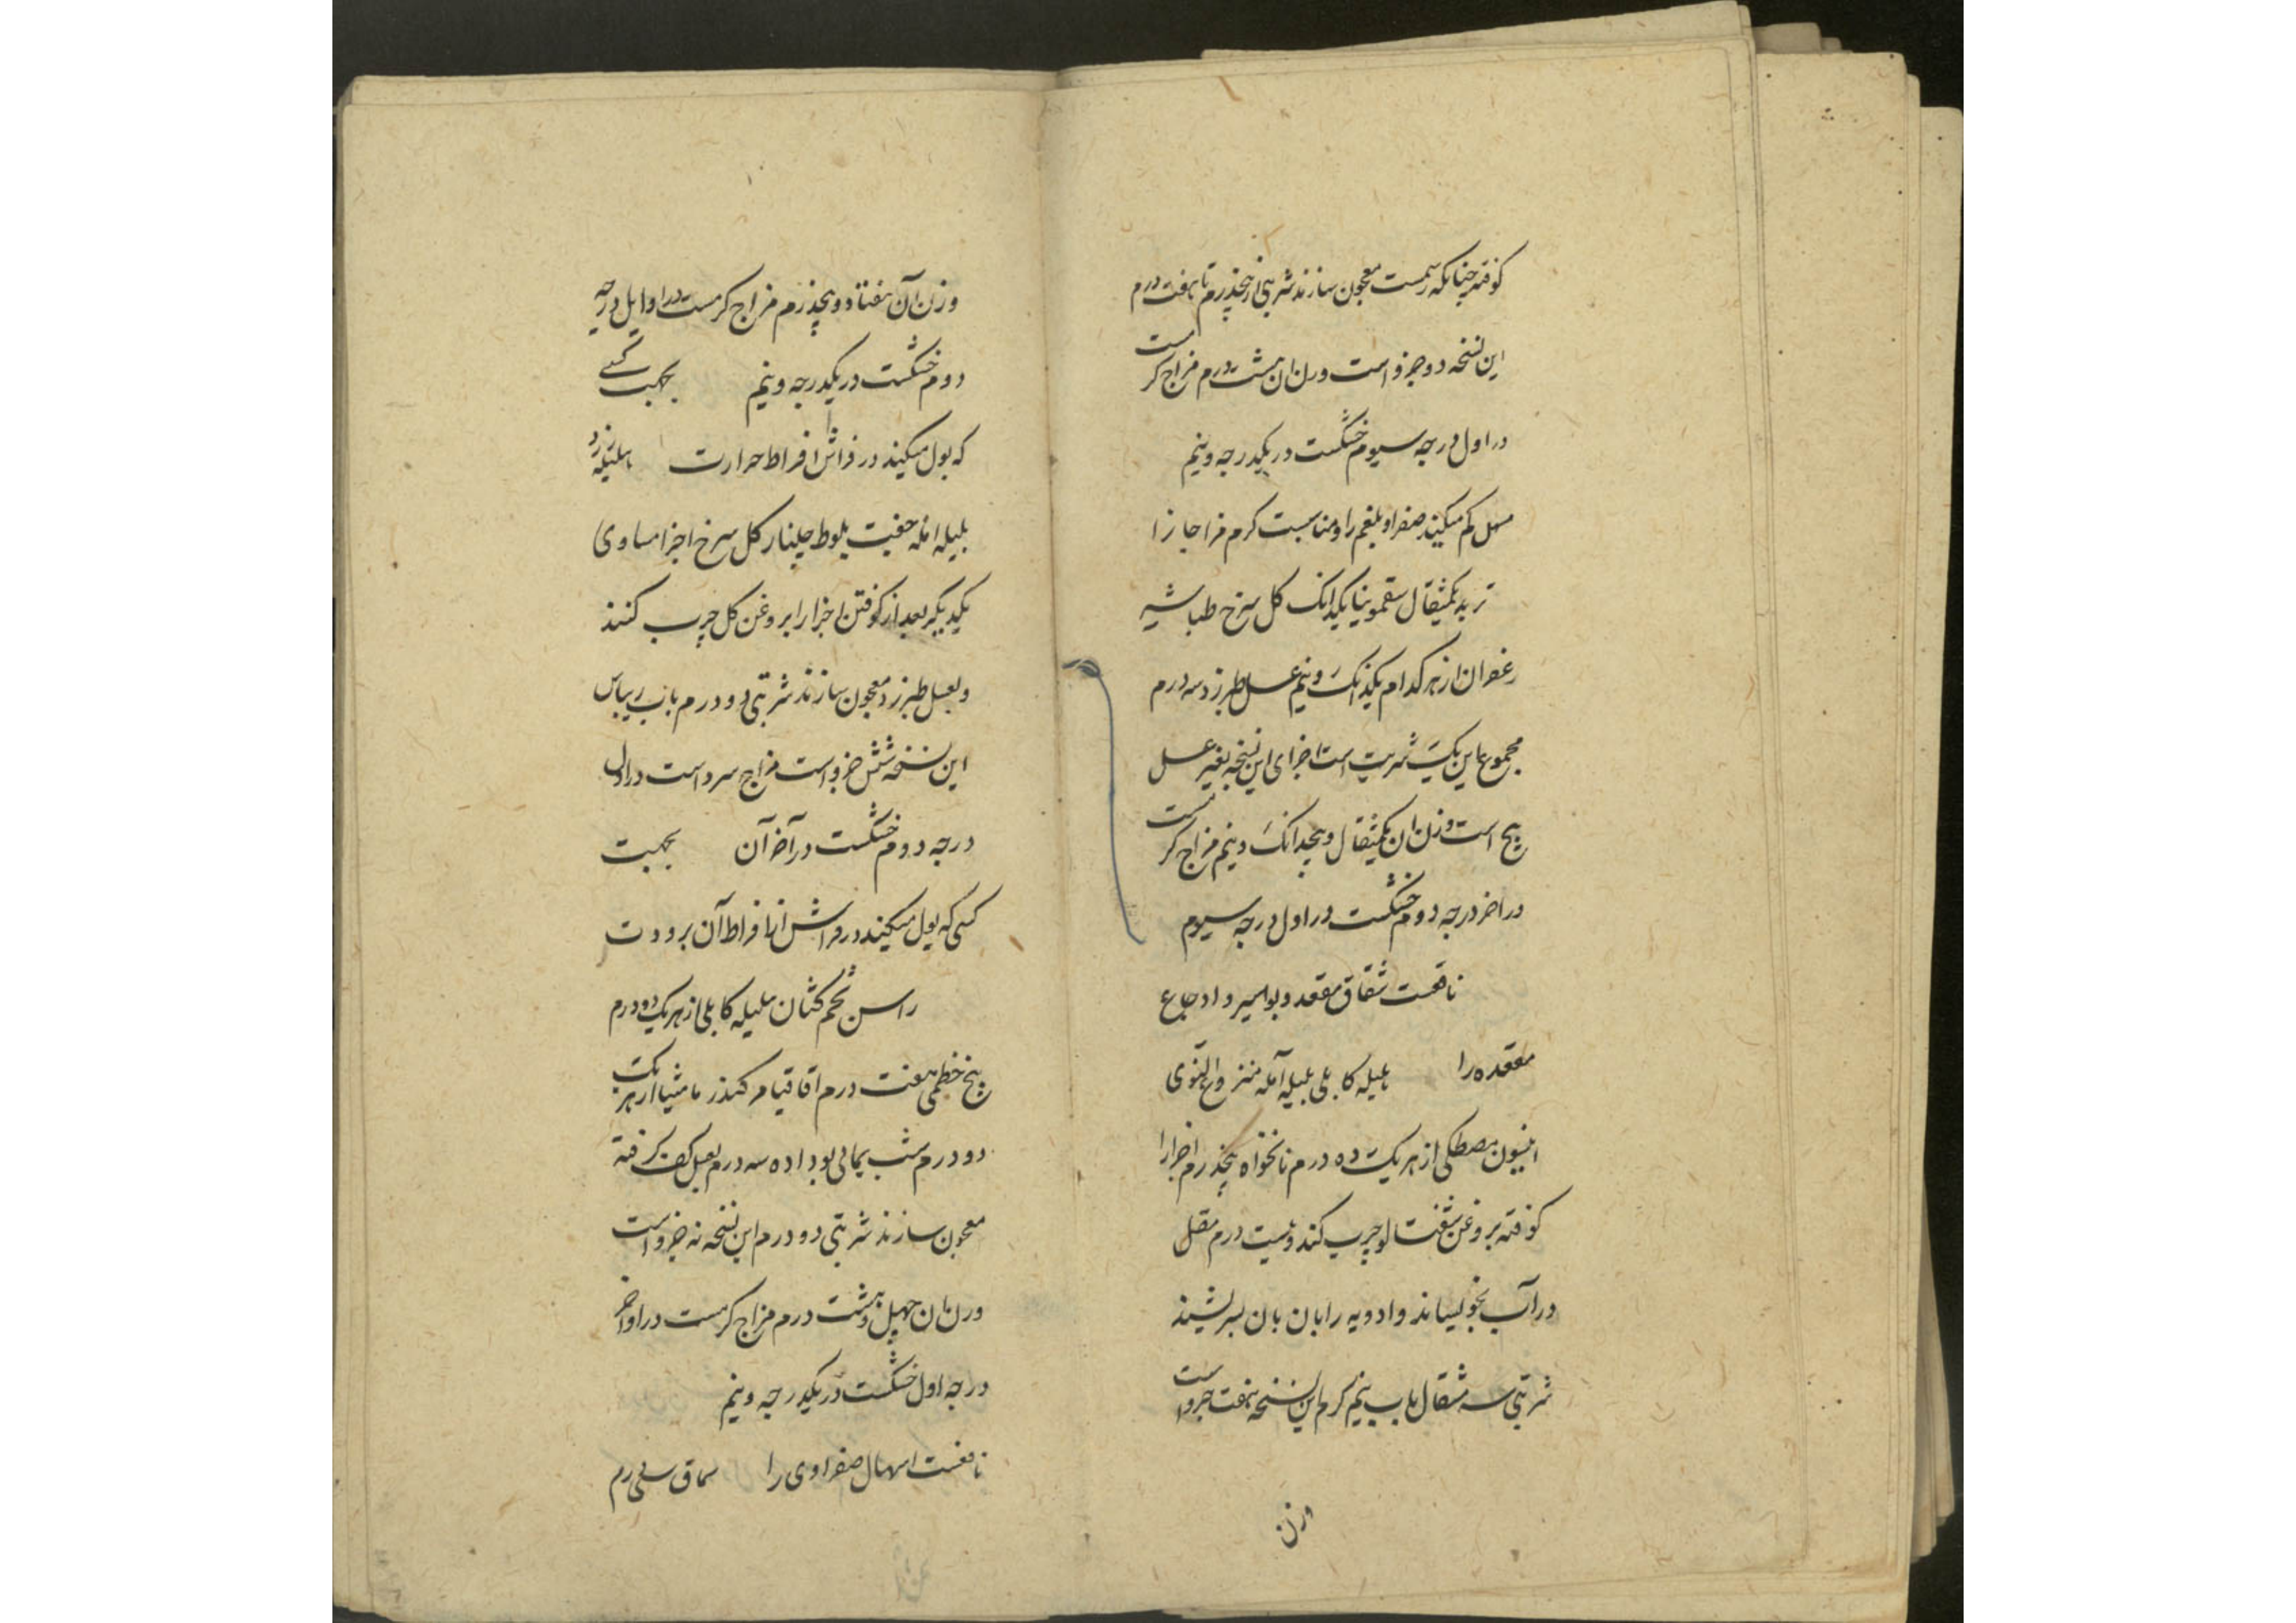 کوفته چنانکه رسمست معجون سازند شربتی از پنجدرم تا هفت درم
این نسخه دو جزو است وزن ان هشت درم مزاج کرمست
در اول درجه سیوم خشکست در یکدرجه و نیم
مسهل کم میکند صفرا و بلغم را و مناسبت کرم مزاجانرا
تربد یکمثقال سقمونیا یکدانک کل سرخ طباشیر
زعفران از هر کدام یکدانک و نیم عسل طبرزد سه درم
مجموع این یک شربت است اجزای این نسخه بغیر عسل
پنج است وزن ان یکمثقال و پنجدانک و نیم مزاج کرمست
در اخر درجه دوم خشکست در اول درجه سیوم
نافعست شقاق مقعد و بواسیر و اوجاع
مقعده را هلیله کابلی بلیله آمله منزوع النوی
انیسون مصطکی از هر یک ده درم نانخواه پنجدرم اجزا را
کوفته بروغن شفتالو چرب کند و بیست درم مقل
در آب بخویساند و ادویه را بان بسرشند
شربتی سه مثقال باب نیم کرم این نسخه هفت جزو است
وزن
وزن آن هفتاد و پنجدرم مزاج کرمست در اوایل درجه
دوم خشکست در یکدرجه و نیم بجهت کسی
که بول میکند در فراش افراط حرارت هلیله زرد
بلیله امله جفت بلوط جلنار کل سرخ اجزا مساوی
یکدیکر بعد از کوفتن اجزا را بروغن کل چرب کنند
و بعسل طبرزد معجون سازند شربتی دو درم باب ریباس
این نسخه شش جزو است مزاج سرد است در اول
درجه دوم خشکست در آخر آن بجهت
کسی که بول میکند در فراش از افراط آن برودت
راسن تخم کتان هلیله کابلی از هر یک دو درم
بیخ خطمی هفت درم اقاقیا مر کندر مامیثا از هر یک
دو درم شب یمانی بو داده سه درم بعسل کف کرفته
معجون سازند شربتی دو درم این نسخه نه جزو است
وزن ان چهل و هشت درم مزاج کرمست در اواخر
درجه اول خشکست در یکدرجه و نیم
نافعست اسهال صفراوی را سماق سی درم